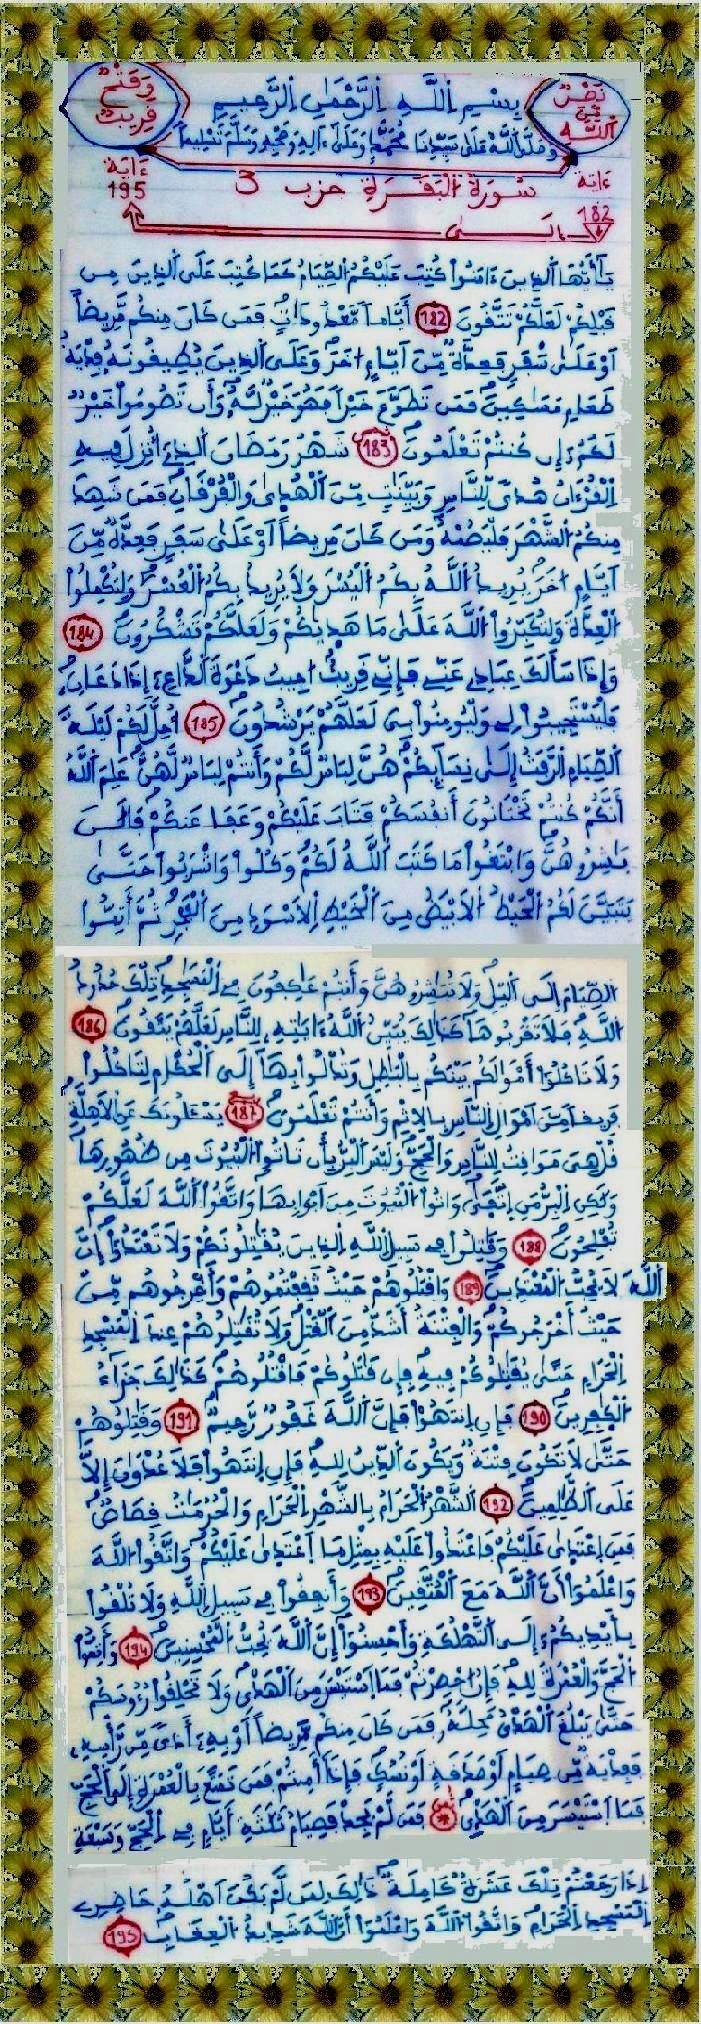 نَصْرٌ مِّنَ اللَّهِ
وَفَتْحٌ قَرِيبٌ
بِسْمِ اللَّهِ الرَّحْمَٰنِ الرَّحِيمِ
وصلى الله على سيدنا محمد وعلى ءاله وصحبه وسلم تسليما
سُورَةُ الْبَقَرَةِ حزب 3
ءاية 182 إلى ءاية 195
يَٰأَيُّهَا الذِينَ ءَامَنُواْ كُتِبَ عَلَيْكُمُ الصِّيَامُ كَمَا كُتِبَ عَلَى الذِينَ مِن
قَبْلِكُمْ لَعَلَّكُمْ تَتَّقُونَ 182 أَيَّاماً مَّعْدُودَاتٍ فَمَن كَانَ مِنكُم مَّرِيضاً
اَوْ عَلَىٰ سَفَرٍ فَعِدَّةٌ مِّنَ اَيَّامٍ اُخَرَ وَعَلَى الذِينَ يُطِيقُونَهُ فِدْيَةُ
طَعَامِ مَسَٰكِينَ فَمَن تَطَوَّعَ خَيْراً فَهُوَ خَيْرٌ لَّهُ وَأَن تَصُومُواْ خَيْرٌ
لَّكُمُ إِن كُنتُمْ تَعْلَمُونَ 183 شَهْرُ رَمَضَانَ الذِي أُنزِلَ فِيهِ
الْقُرْءَانُ هُدىً لِّلنَّاسِ وَبَيِّنَٰتٍ مِّنَ الْهُدَىٰ وَالْفُرْقَانِ فَمَن شَهِدَ
مِنكُمُ الشَّهْرَ فَلْيَصُمْهُ وَمَن كَانَ مَرِيضاً اَوْ عَلَىٰ سَفَرٍ فَعِدَّةٌ مِّنَ
اَيَّامٍ اُخَرَ يُرِيدُ اللَّهُ بِكُمُ الْيُسْرَ وَلَا يُرِيدُ بِكُمُ الْعُسْرَ وَلِتُكْمِلُواْ
الْعِدَّةَ وَلِتُكَبِّرُواْ اللَّهَ عَلَىٰ مَا هَدَىٰكُمْ وَلَعَلَّكُمْ تَشْكُرُونَ 184
وَإِذَا سَأَلَكَ عِبَادِي عَنِّي فَإِنِّي قَرِيبٌ اُجِيبُ دَعْوَةَ الدَّاعِ إِذَا دَعَانِ
فَلْيَسْتَجِيبُواْ لِي وَلْيُومِنُواْ بِي لَعَلَّهُمْ يَرْشُدُونَ 185 أُحِلَّ لَكُمْ لَيْلَةَ
الصِّيَامِ الرَّفَثُ إِلَىٰ نِسَائِكُمْ هُنَّ لِبَاسٌ لَّكُمْ وَأَنتُمْ لِبَاسٌ لَّهُنَّ عَلِمَ اللَّهُ
أَنَّكُمْ كُنتُمْ تَخْتَانُونَ أَنفُسَكُمْ فَتَابَ عَلَيْكُمْ وَعَفَا عَنكُمْ فَالَٰنَ
بَٰشِرُوهُنَّ وَابْتَغُواْ مَا كَتَبَ اللَّهُ لَكُمْ وَكُلُواْ وَاشْرَبُواْ حَتَّىٰ
يَتَبَيَّنَ لَكُمُ الْخَيْطُ الَابْيَضُ مِنَ الْخَيْطِ الَاسْوَدِ مِنَ الْفَجْرِ ثُمَّ أَتِمُّواْ
الصِّيَامَ إِلَى الَيْلِ وَلَا تُبَٰشِرُوهُنَّ وَأَنتُمْ عَٰكِفُونَ فِي الْمَسَٰجِدِ تِلْكَ حُدُودُ
اللَّهِ فَلَا تَقْرَبُوهَا كَذَٰلِكَ يُبَيِّنُ اللَّهُ ءَايَٰتِهِ لِلنَّاسِ لَعَلَّهُمْ يَتَّقُونَ 186
وَلَا تَاكُلُواْ أَمْوَٰلَكُم بَيْنَكُم بِالْبَٰطِلِ وَتُدْلُواْ بِهَا إِلَى الْحُكَّامِ لِتَاكُلُواْ
فَرِيقاً مِّنَ اَمْوَٰلِ النَّاسِ بِالِاثْمِ وَأَنتُمْ تَعْلَمُونَ 187 يَسْـَٔلُونَكَ عَنِ الَاهِلَّةِ
قُلْ هِيَ مَوَٰقِيتُ لِلنَّاسِ وَالْحَجِّ وَلَيْسَ الْبِرُّ بِأَن تَاتُواْ الْبُيُوتَ مِن ظُهُورِهَا
وَلَٰكِنِ الْبِرُّ مَنِ اِتَّقَىٰ وَاتُواْ الْبُيُوتَ مِنَ اَبْوَٰبِهَا وَاتَّقُواْ اللَّهَ لَعَلَّكُمْ
تُفْلِحُونَ 188 وَقَٰتِلُواْ فِي سَبِيلِ اللَّهِ الذِينَ يُقَٰتِلُونَكُمْ وَلَا تَعْتَدُواْ إِنَّ
اللَّهَ لَا يُحِبُّ الْمُعْتَدِينَ 189 وَاقْتُلُوهُمْ حَيْثُ ثَقِفْتُمُوهُمْ وَأَخْرِجُوهُم مِّنْ
حَيْثُ أَخْرَجُوكُمْ وَالْفِتْنَةُ أَشَدُّ مِنَ الْقَتْلِ وَلَا تُقَٰتِلُوهُمْ عِندَ الْمَسْجِدِ
الْحَرَامِ حَتَّىٰ يُقَٰتِلُوكُمْ فِيهِ فَإِن قَٰتَلُوكُمْ فَاقْتُلُوهُمْ كَذَٰلِكَ جَزَاءُ
الْكَٰفِرِينَ 190 فَإِنِ اِنتَهَوْاْ فَإِنَّ اللَّهَ غَفُورٌ رَّحِيمٌ 191 وَقَٰتِلُوهُمْ
حَتَّىٰ لَا تَكُونَ فِتْنَةٌ وَيَكُونَ الدِّينُ لِلهِ فَإِنِ اِنتَهَوْاْ فَلَا عُدْوَٰنَ إِلَّا
عَلَى الظَّٰلِمِينَ 192 الشَّهْرُ الْحَرَامُ بِالشَّهْرِ الْحَرَامِ وَالْحُرُمَٰتُ قِصَاصٌ
فَمَنِ اِعْتَدَىٰ عَلَيْكُمْ فَاعْتَدُواْ عَلَيْهِ بِمِثْلِ مَا اَعْتَدَىٰ عَلَيْكُمْ وَاتَّقُواْ اللَّهَ
وَاعْلَمُواْ أَنَّ اللَّهَ مَعَ الْمُتَّقِينَ 193 وَأَنفِقُواْ فِي سَبِيلِ اللَّهِ وَلَا تُلْقُواْ
بِأَيْدِيكُمُ إِلَى التَّهْلُكَةِ وَأَحْسِنُواْ إِنَّ اللَّهَ يُحِبُّ الْمُحْسِنِينَ 194 وَأَتِمُّواْ
الْحَجَّ وَالْعُمْرَةَ لِلهِ فَإِنُ اُحْصِرْتُمْ فَمَا اَسْتَيْسَرَ مِنَ الْهَدْيِ وَلَا تَحْلِقُواْ رُءُوسَكُمْ
حَتَّىٰ يَبْلُغَ الْهَدْيُ مَحِلَّهُ فَمَن كَانَ مِنكُم مَّرِيضاً اَوْ بِهِ أَذىً مِّن رَّأْسِهِ
فَفِدْيَةٌ مِّن صِيَامٍ اَوْ صَدَقَةٍ اَوْ نُسُكٍ فَإِذَا أَمِنتُمْ فَمَن تَمَتَّعَ بِالْعُمْرَةِ إِلَى الْحَجِّ
فَمَا اَسْتَيْسَرَ مِنَ الْهَدْيِ فَمَن لَّمْ يَجِدْ فَصِيَامُ ثَلَٰثَةِ أَيَّامٍ فِي الْحَجِّ وَسَبْعَةٍ
إِذَا رَجَعْتُمْ تِلْكَ عَشَرَةٌ كَامِلَةٌ ذَٰلِكَ لِمَن لَّمْ يَكُنَ اَهْلُهُ حَاضِرِي
الْمَسْجِدِ الْحَرَامِ وَاتَّقُواْ اللَّهَ وَاعْلَمُواْ أَنَّ اللَّهَ شَدِيدُ الْعِقَابِ 195